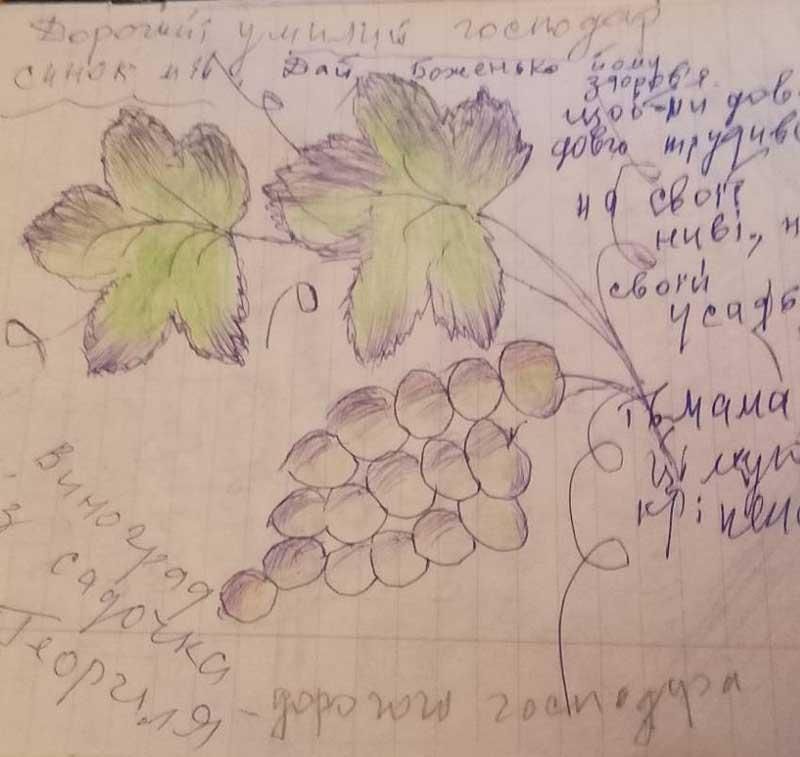 Дорогий, умилий господар
синок мій, Дай, Боженько йому
здоров'я.
щоб-ми дов
довго трудивс
на своїй
ниві, н
своїй
усадб
мама
цілую
кріпень
Виноград
з садочка
Георгія
-дорогого господаря